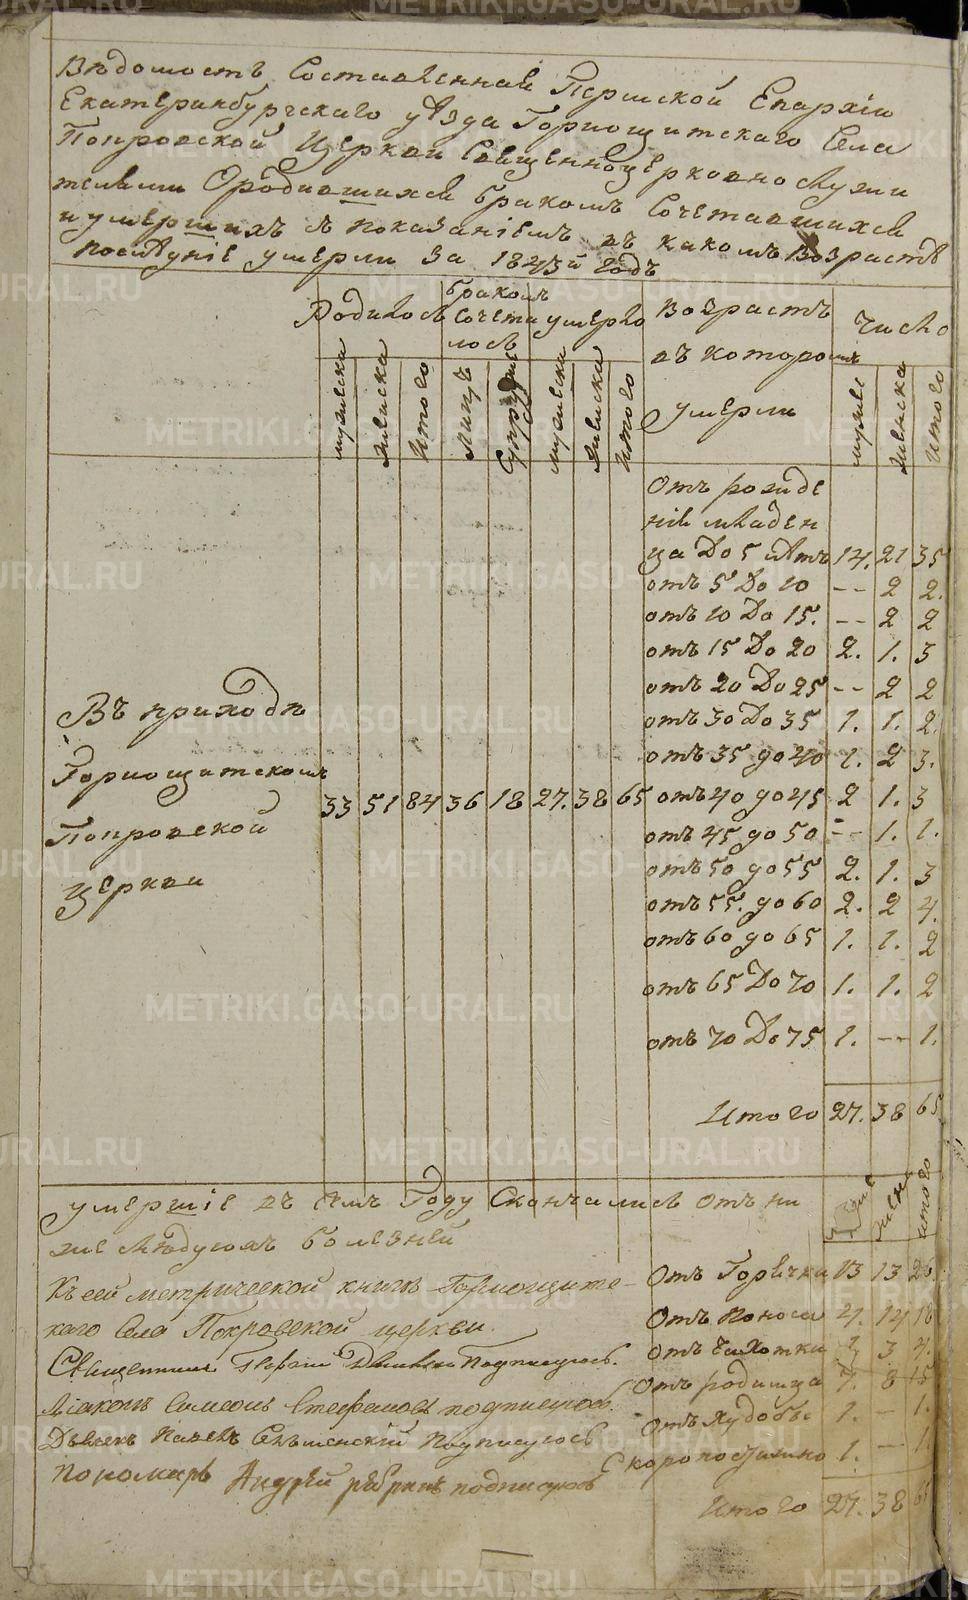 Вѣдомость Составленная Пермской Епархіи
Екатеринбургскаго уѣзда Горнощитскаго Села
Покровской Церкви Священноцерковнослужи
телями О родившихся бракомъ Сочетавшихся
и умершихъ съ показаніемъ въ какомъ Возрастѣ
послѣдніе умерли За 1843й годъ
Родилось
бракомъ Сочета лось
умерло
Возрастъ въ которомъ умерли
Число
мужеска
женска
Итого
Лицъ
Супруж
мужеска
женска
Итого
мужес
женска
Итого
Отъ рожде
нія младен
ца До 5 лѣтъ 14. 21 35
отъ 5 До 10 -- 2 2.
отъ 10 До 15. -- 2 2
отъ 15 До 20 2. 1. 3
отъ 20 До 25 -- 2 2
отъ 30 До 35 1. 1. 2.
отъ 35 до 40 1. 2 3.
отъ 40 до 45 2 1. 3
отъ 45 до 50 -- 1. 1.
отъ 50 до 55 2. 1. 3
отъ 55. до 60 2. 2 4.
отъ 60 до 65 1. 1. 2
отъ 65 До 70 1. 1. 2
отъ 70 До 75 1. -- 1.
Итого 27. 38 65
Въ приходѣ
Горнощитскомъ
Покровской
Церкви
33 51 84 36 18 27. 38 65
умершіе въ семъ Году Скончались отъ ни
же слѣдующихъ болезней
женс
итого
Отъ Горячки 13 13 26
Отъ поноса 4. 14 18
отъ Чахотки 1 3 4.
отъ родимца 7. 8 15
отъ худобы 1. - 1.
Скоропостижно 1. - 1.
Итого 27. 38 65
Къ сей метрической книгѣ Горнощитс-
каго Села Покровской церкви.
Священникъ подписуюсь.
Діаконъ Симеонъ Стефановъ подписуюсь.
Дьячекъ Павелъ подписуюсь
Пономарь Андрей подписуюсь
METRIKI.GASO-URAL.RU